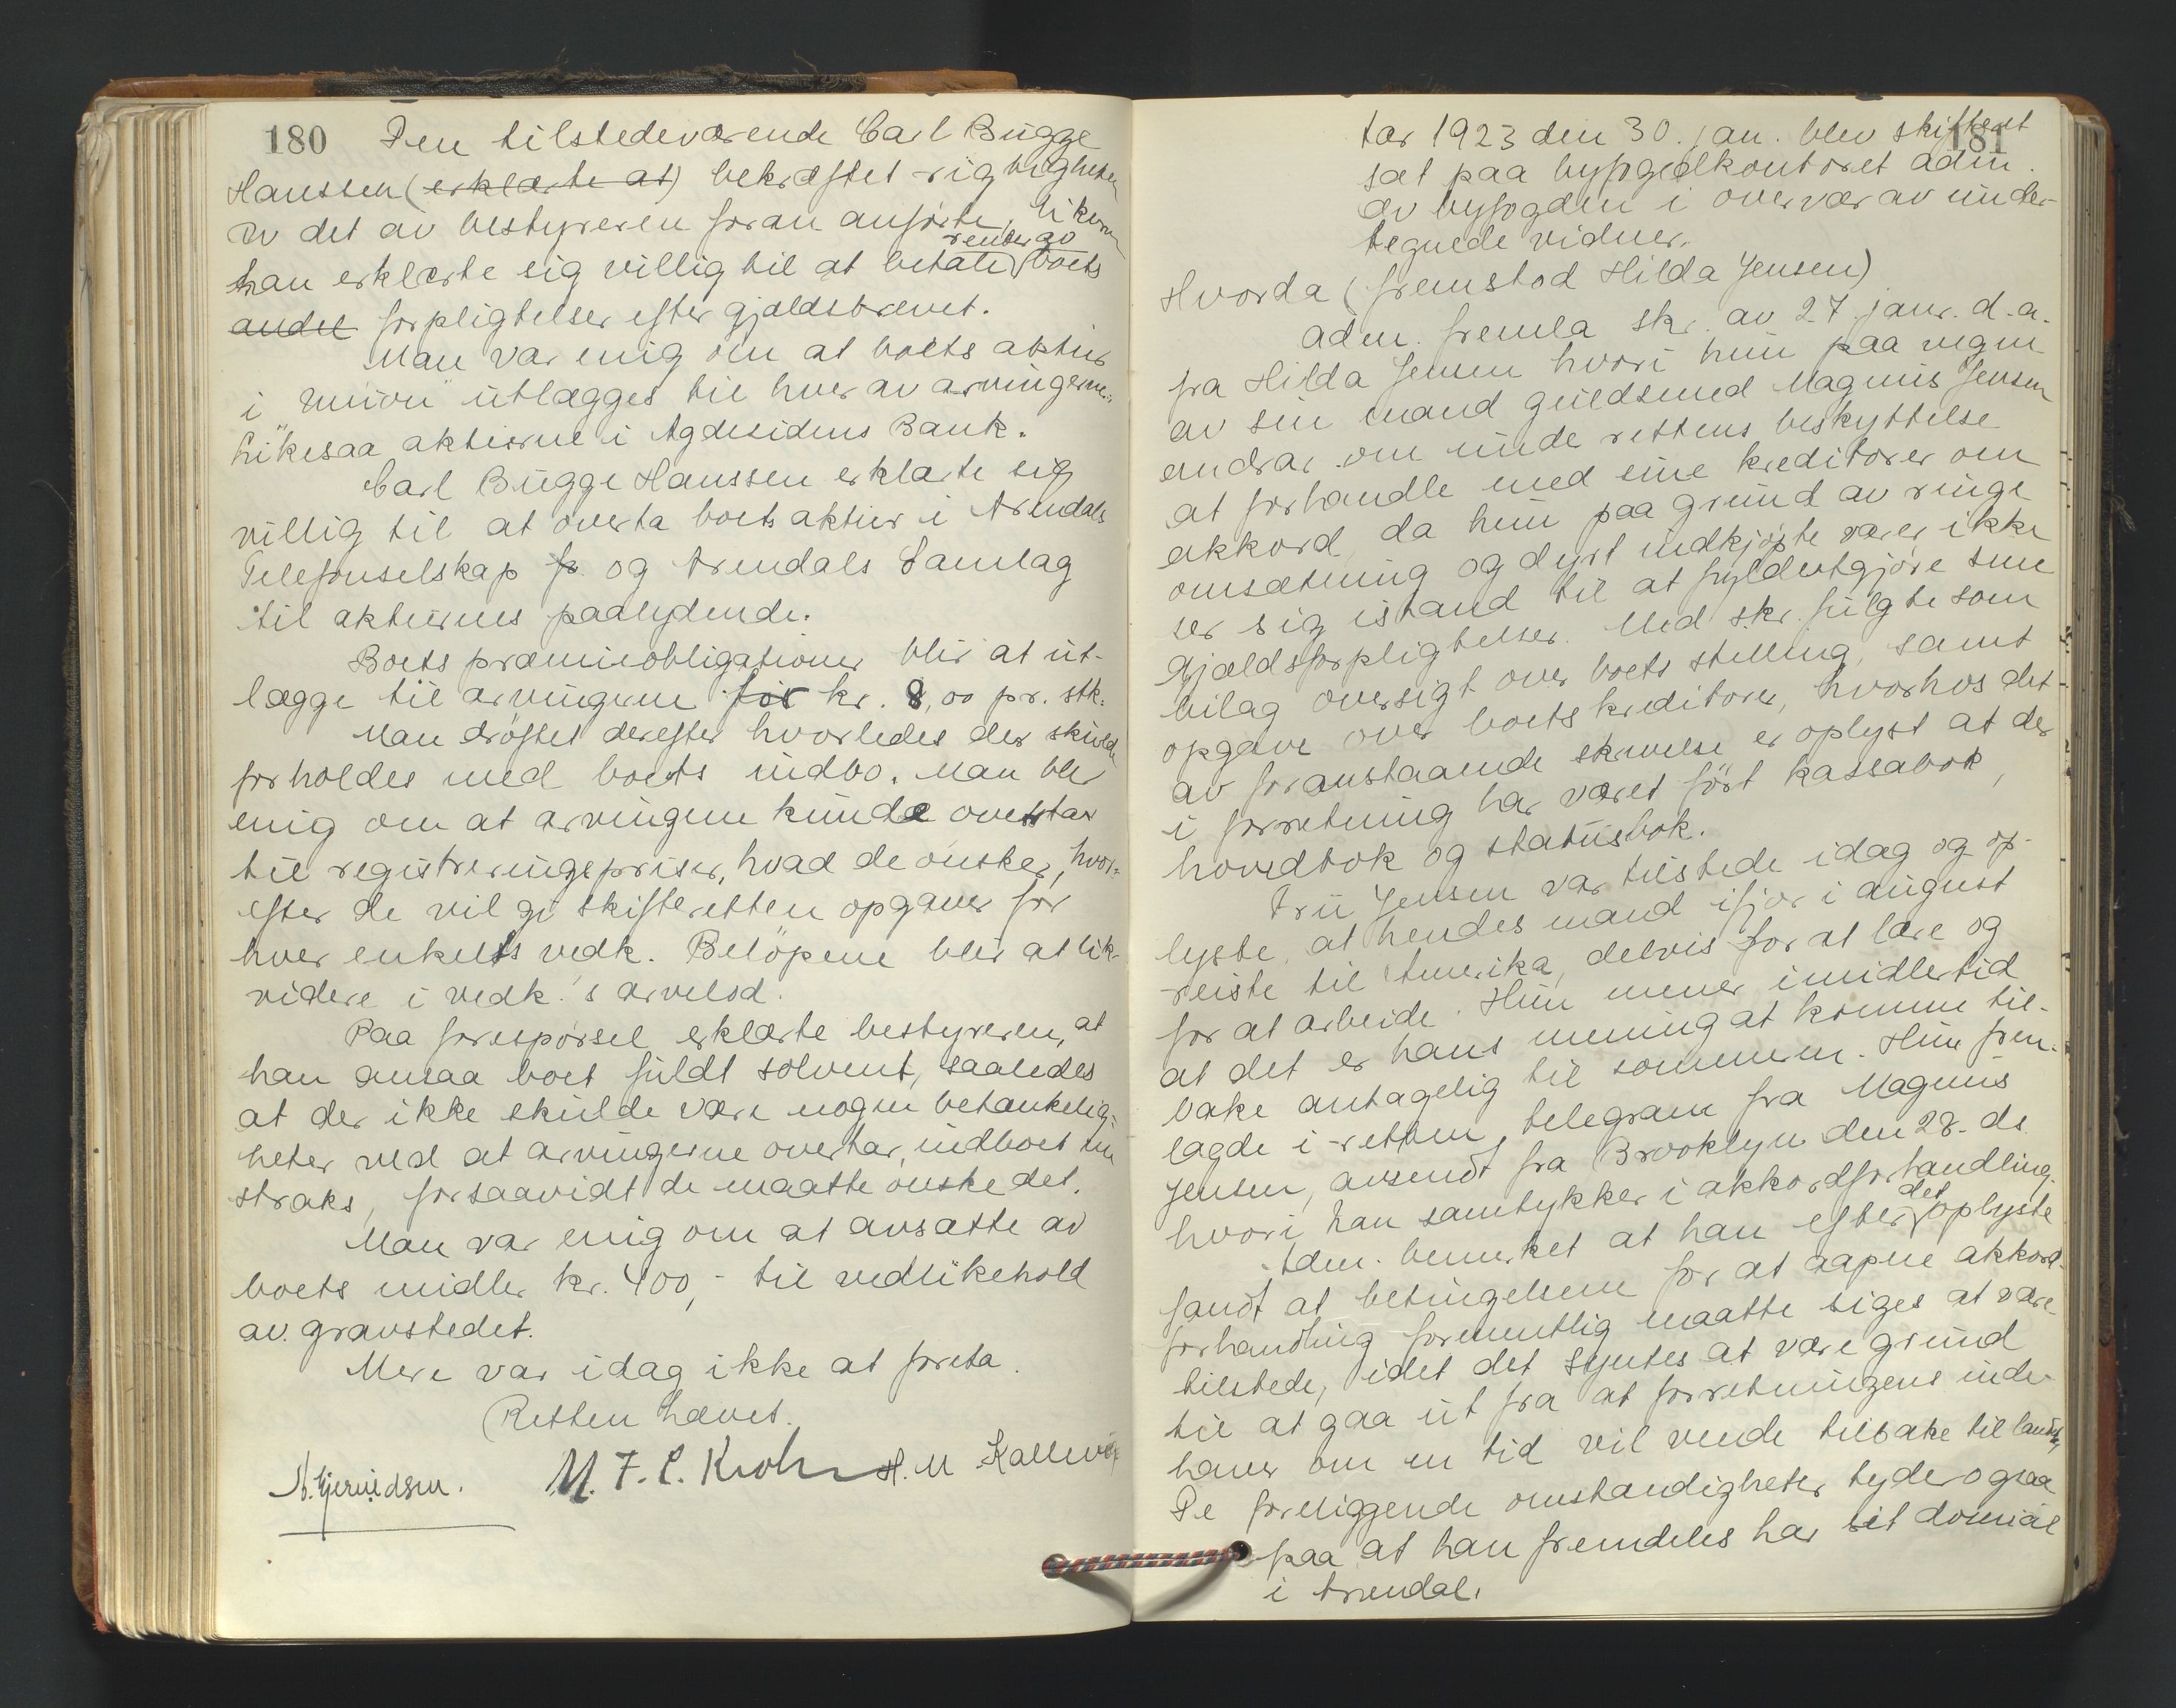 180 Den tilstedeværende Carl Bugge
Hanssen (erklærte at) bekræftet rigtigheten
av det av bestyreren foran anførte, likesom
han erklærte sig villig til at betale renter av boets
andel forpligtelser efter gjældsbrevet.
Man var enig om at boets aktier
i "Union" utlægges til hver av arvingerne.
Likesaa aktierne i Agdesidens Bank.
Carl Bugge Hanssen erklærte sig
villig til at overta boets aktier i Arendals
Telefonselskap og Arendals Samlag
til aktiernes paalydende.
Boets præmieobligationer blir at ut-
lægge til arvingerne for kr. 8,00 pr. stk.
Man drøftet derefter hvorledes der skulde
forholdes med boets indbo. Man blev
enig om at arvingerne kunde overta
til registreringspriser, hvad de ønsker, hvor-
efter de vil gi skifteretten opgaver for
hver enkelts vedk. Beløpene blir at lik-
videre i vedk.'s arvelod.
Paa forespørsel erklærte bestyreren, at
han ansaa boet fuldt solvent, saaledes
at der ikke skulde være nogen betænkelig-
heter ved at arvingerne overtar indboet nu
straks, forsaavidt de maatte ønske det.
Man var enig om at avsætte av
boets midler kr. 400,- til vedlikehold
av gravstedet.
Mere var idag ikke at foreta.
Retten hævet.
M. F. C. Krohn H. M. Kallevig
181
Aar 1923 den 30. jan. blev skifteret
sat paa byfogedkontoret adm.
av byfogden i overvær av under-
tegnede vidner.
Hvorda (fremstod Hilda Jensen)
Adm. fremla skr. av 27. janr. d.a.
fra Hilda Jensen hvori hun paa vegne
av sin mand guldsmed Magnus Jensen
andrar om under rettens beskyttelse
at forhandle med sine kreditorer om
akkord, da hun paa grund av ringe
omsætning og dyrt indkjøpte varer ikke
ser sig istand til at fyldestgjøre sine
gjældsforpligtelser. Med skr. fulgte som
bilag oversigt over boets stilling, samt
opgave over boets kreditorer, hvorhos det
av foranstaaende skrivelse er oplyst at der
i forretning har været ført kassabok,
hovedbok og statusbok.
Fru Jensen var tilstede idag og op-
lyste, at hendes mand ifjor i august
reiste til Amerika, delvis for at lære og
for at arbeide. Hun mener imidlertid
at det er hans mening at komme til-
bake antagelig til sommeren. Hun frem-
lagde i retten, telegram fra Magnus
Jensen, avsendt fra Brooklyn den 28. ds.
hvori han samtykker i akkordforhandling.
Adm. bemerket at han efter det oplyste
fandt at betingelsene for at aapne akkord-
forhandling formentlig maatte siges at være
tilstede, idet det syntes at være grund
til at gaa ut fra at forretningens inde-
haver om en tid vil vende tilbake til landet.
De foreliggende omstændigheter tyder ogsaa
paa at han fremdeles har sit domicil
i Arendal.